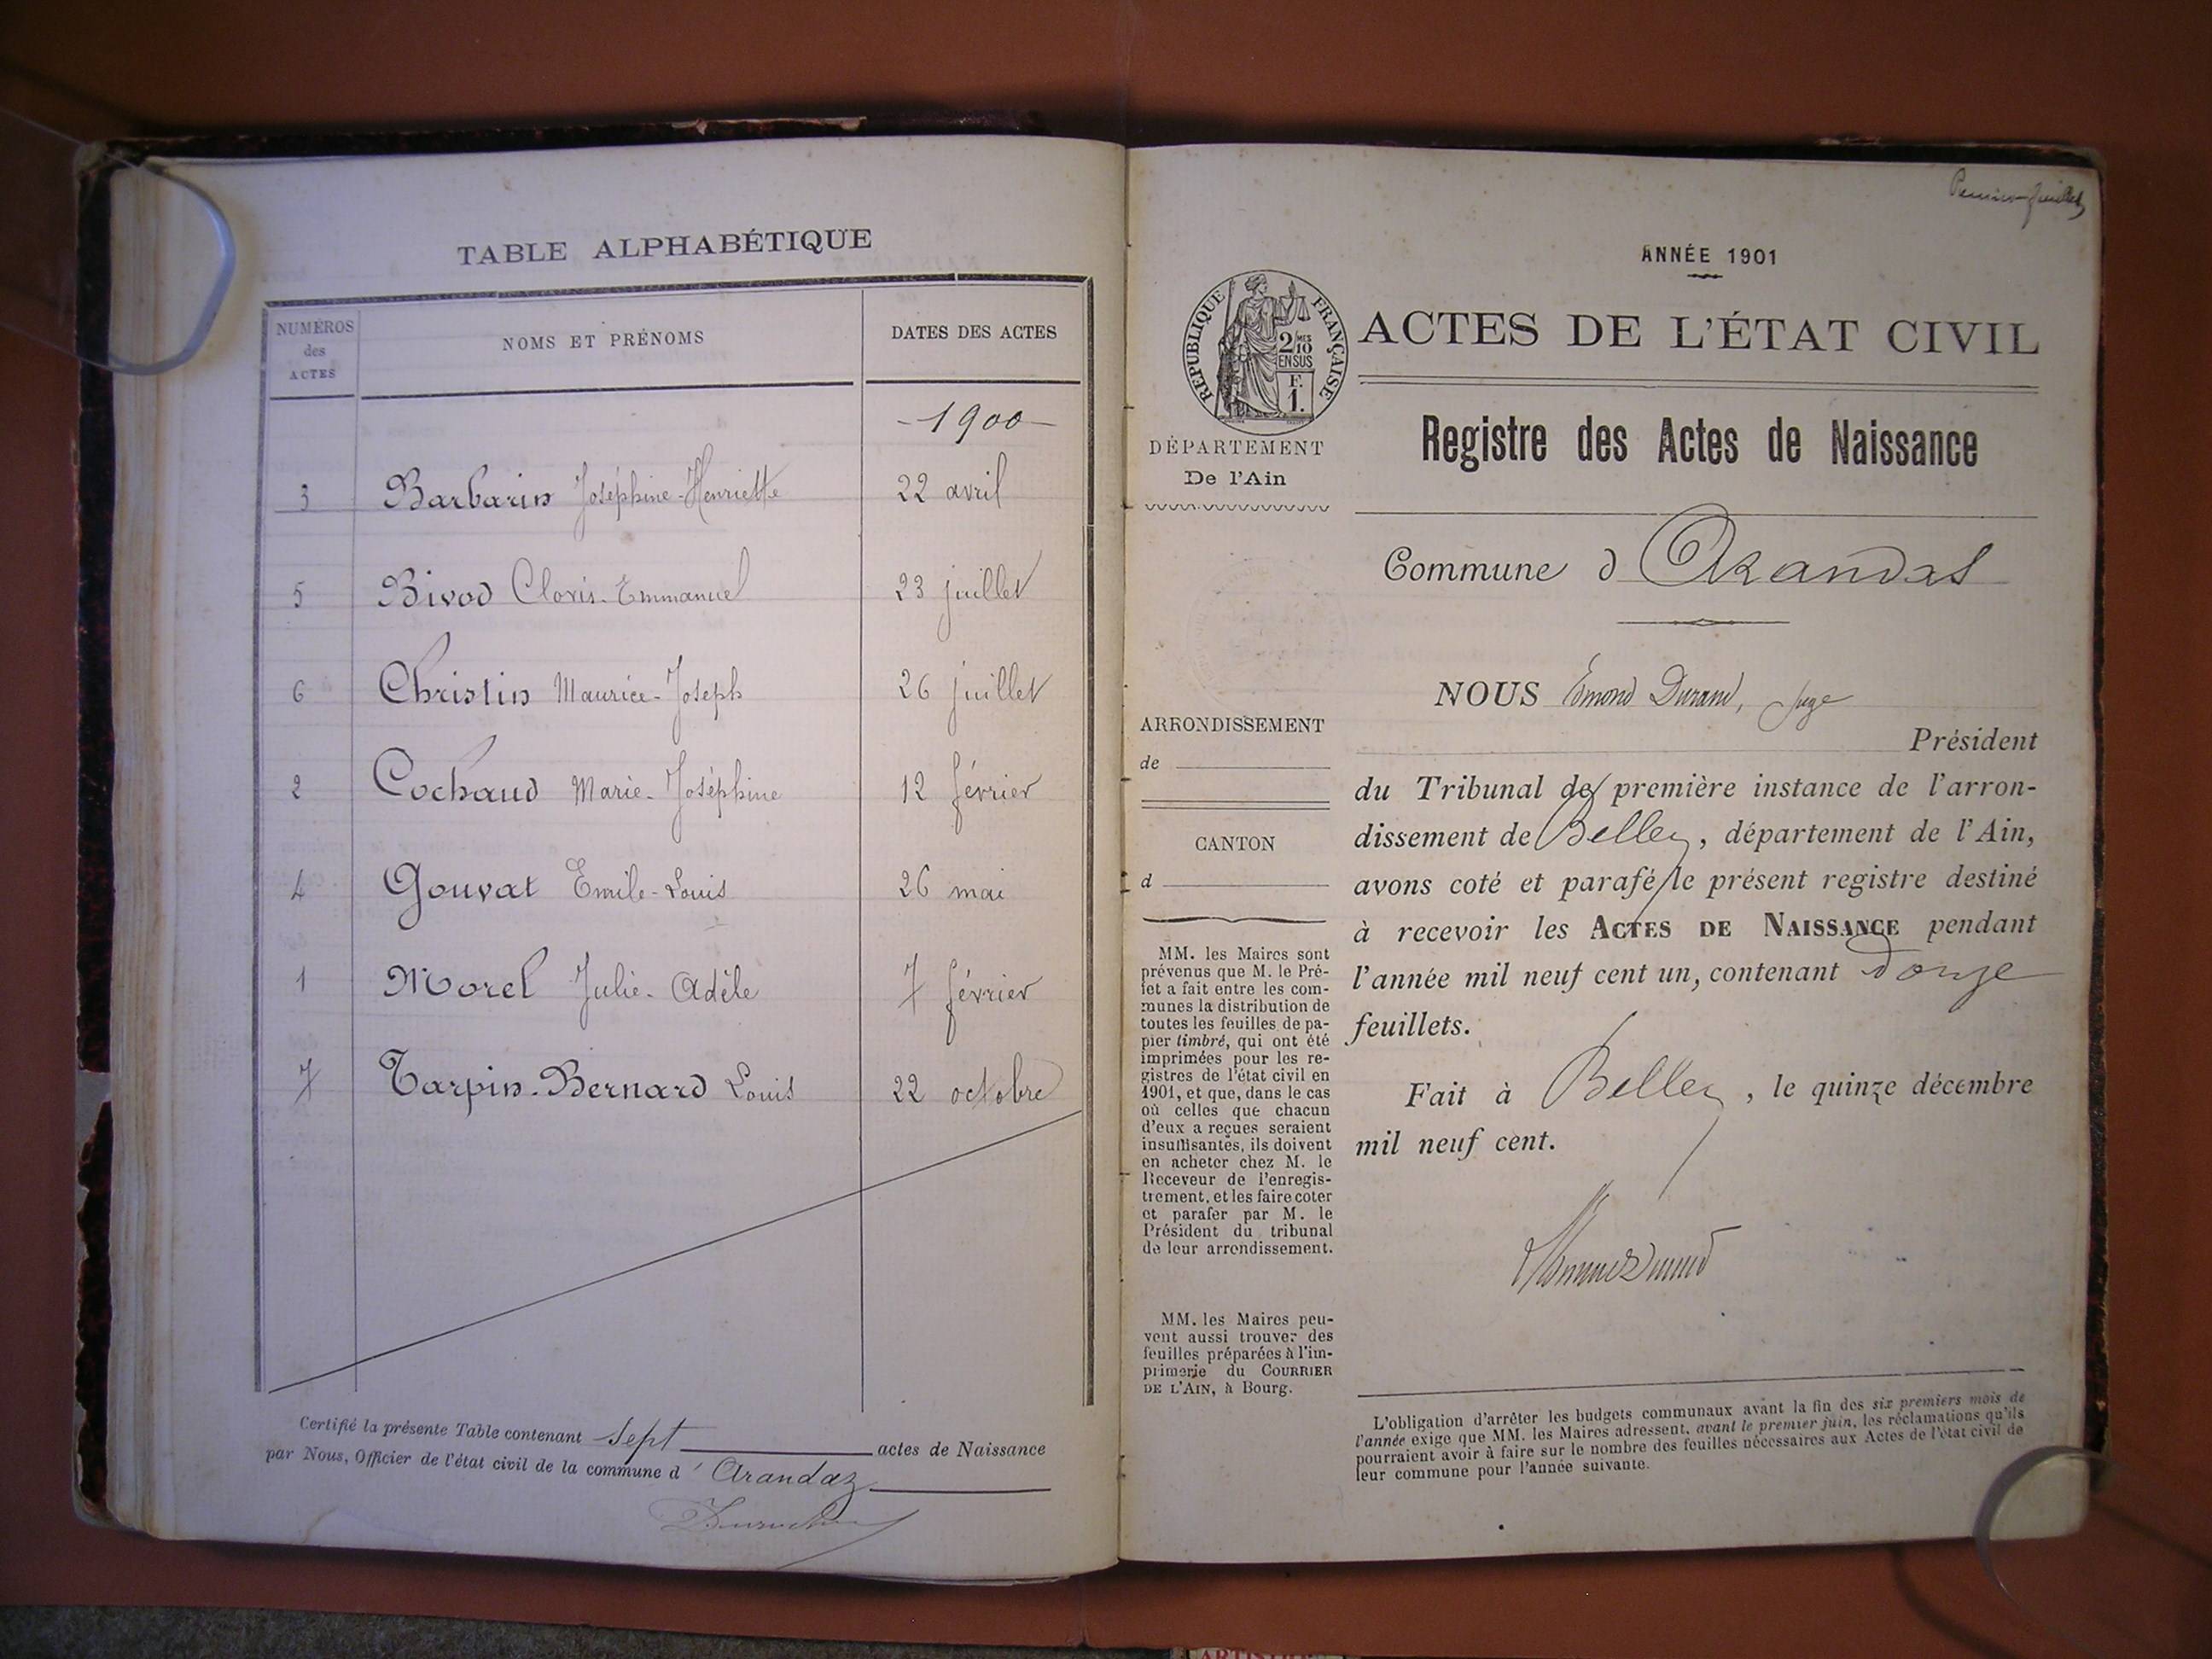 TABLE ALPHABÉTIQUE
NUMÉROS
des
ACTES
NOMS ET PRÉNOMS
DATES DES ACTES
-1900-
3 Barbarin Joséphine-Henriette 22 avril
5 Bivod Clovis-Emmanuel 23 juillet
6 Christin Maurice-Joseph 26 juillet
2 Cochaud Marie-Joséphine 12 février
4 Gouvat Emile-Louis 26 mai
1 Morel Julie-Adèle 7 février
7 Tarpin-Bernard Louis 22 octobre
Certifié la présente Table contenant sept actes de Naissance
par Nous, Officier de l'état civil de la commune d' Arandaz
Premier feuillet
ANNÉE 1901
RÉPUBLIQUE FRANÇAISE
2 MES
10
EN SUS
F.
1.
ACTES DE L'ÉTAT CIVIL
DÉPARTEMENT
De l'Ain
Registre des Actes de Naissance
Commune d Arandas
ARRONDISSEMENT
de
CANTON
d
MM. les Maires sont
prévenus que M. le Pré-
fet a fait entre les com-
munes la distribution de
toutes les feuilles de pa-
pier timbré, qui ont été
imprimées pour les re-
gistres de l'état civil en
1901, et que, dans le cas
où celles que chacun
d'eux a reçues seraient
insuffisantes, ils doivent
en acheter chez M. le
Receveur de l'enregis-
trement, et les faire coter
et parafer par M. le
Président du tribunal
de leur arrondissement.
MM. les Maires peu-
vent aussi trouver des
feuilles préparées à l'im-
primerie du COURRIER
DE L'AIN, à Bourg.
NOUS Edmond Durand, Juge
Président
du Tribunal de première instance de l'arron-
dissement de Belley, département de l'Ain,
avons coté et parafé le présent registre destiné
à recevoir les ACTES DE NAISSANCE pendant
l'année mil neuf cent un, contenant douze
feuillets.
Fait à Belley, le quinze décembre
mil neuf cent.
L'obligation d'arrêter les budgets communaux avant la fin des six premiers mois de
l'année exige que MM. les Maires adressent, avant le premier juin, les réclamations qu'ils
pourraient avoir à faire sur le nombre des feuilles nécessaires aux Actes de l'état civil de
leur commune pour l'année suivante.